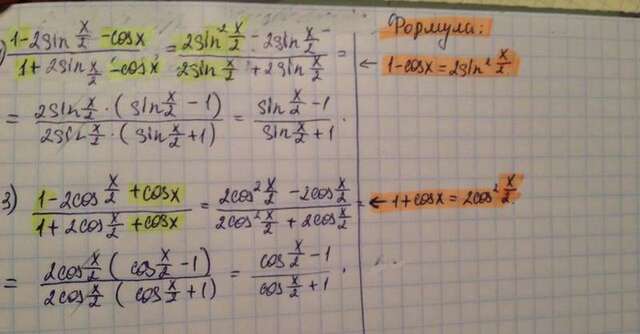 ) (1-2sin x/2 -cosx)/(1+2sin x/2 -cosx) = (2sin² x/2 - 2sin x/2)/(2sin x/2 + 2sin x/2) =
= (2sin x/2 · (sin x/2 - 1))/(2sin x/2 · (sin x/2 + 1)) = (sin x/2 - 1)/(sin x/2 + 1) .
3) (1-2cos x/2 +cosx)/(1+2cos x/2 +cosx) = (2cos² x/2 - 2cos x/2)/(2cos² x/2 + 2cos x/2) =
= (2cos x/2 (cos x/2 - 1))/(2cos x/2 (cos x/2 + 1)) = (cos x/2 - 1)/(cos x/2 + 1) .
Формула:
← 1-cosx = 2sin² x/2
← 1+cosx = 2cos² x/2